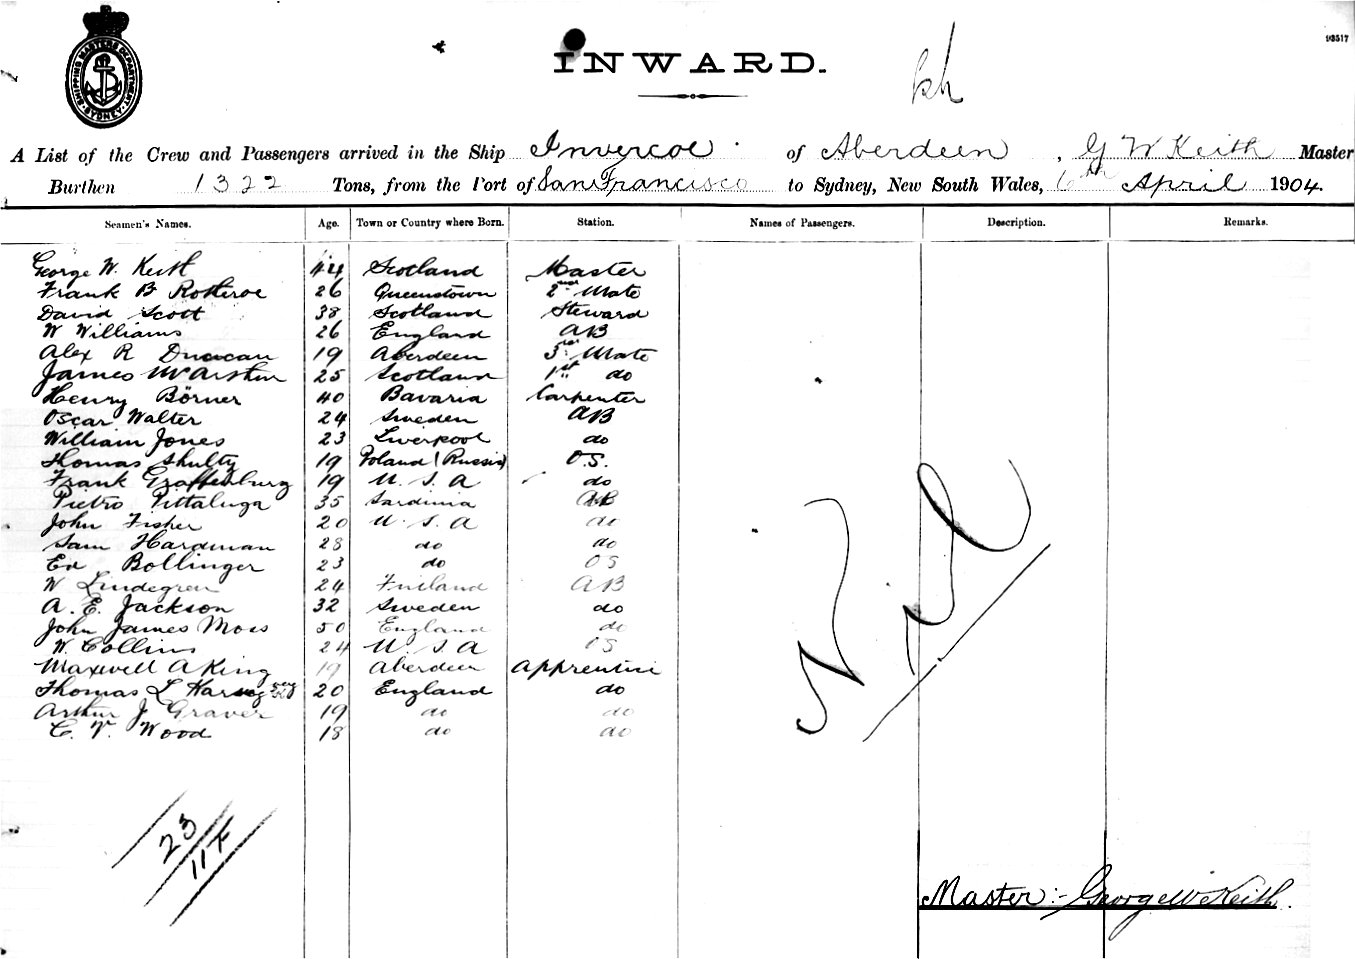 SHIPPING MASTERS DEPARTMENT SYDNEY
93517
INWARD.
A List of the Crew and Passengers arrived in the Ship Invercoe of Aberdeen, G W Keith Master
Burthen 1322 Tons, from the Port of San Francisco to Sydney, New South Wales, 6th April 1904.
Seamen's Names. Age. Town or Country where Born. Station. Names of Passengers. Description. Remarks.
George W. Keith 44 Scotland Master
Frank B 26 Queenstown 2nd Mate
David Scott 38 Scotland Steward
W Williams 26 England AB
Alex R Duncan 19 Aberdeen 3rd Mate
James McArthur 25 Scotland 1st do
Henry Börner 40 Bavaria Carpenter
Oscar Walter 24 Sweden AB
William Jones 23 Liverpool do
Thomas Shulty 19 Poland (Russia) O.S.
Frank Graffenburg 19 U. S. A do
Pietro Pittaluga 35 Sardinia AB
John Fisher 20 U. S. A do
Sam Hardman 28 do do
Ed Bollinger 23 do OS
W Lindegren 24 Finland AB
A. E. Jackson 32 Sweden do
John James Moss 50 England do
W. Collins 24 U. S. A OS
Maxwell A King 19 Aberdeen Apprentice
Thomas L 20 England do
Arthur J Graver 19 do do
C. V. Wood 18 do do
Nil
23
11 F
Master:- George W Keith.